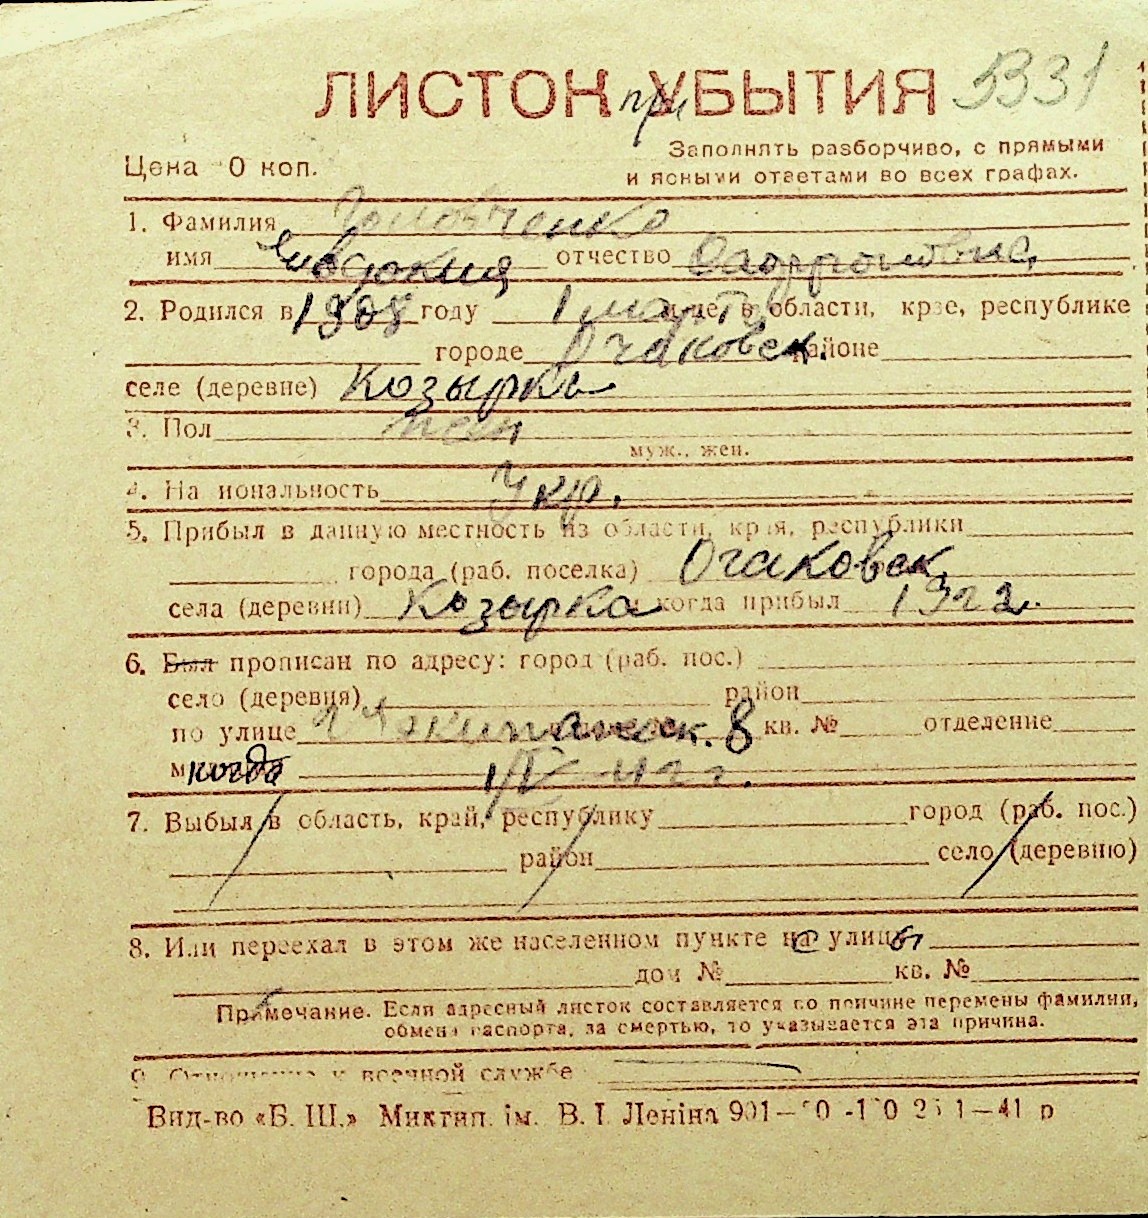 ЛИСТОК при УБЫТИЯ
Цена 0 коп. Заполнять разборчиво, с прямыми
и ясными ответами во всех графах.
1. Фамилия
имя Евдокия отчество
2. Родился в 1908 году 1 марта в области, крае, республике
городе Очаковск. районе
селе (деревне) Козырка
3. Пол
муж., жен.
4. На иональность Укр.
5. Прибыл в данную местность из области, края, республики
города (раб. поселка) Очаковск
села (деревни) Козырка и когда прибыл
6. Был прописан по адресу: город (раб. пос.)
село (деревня) район
по улице 8 кв. № отделение
когда
7. Выбыл в область, край, республику город (раб. пос.)
район село (деревню)
8. Или переехал в этом же населенном пункте с улицы
дом № кв. №
Примечание. Если адресный листок составляется по причине перемены фамилии,
обмена паспорта, за смертью, то указывается эта причина.
9. Отношение к военной службе
Вид-во «Б. Ш.» Миктип. ім. В. І. Леніна